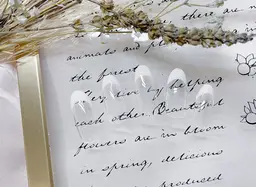 there are m
animals and pl
the forest
They live by helping
each other. Beautiful
flowers are in bloom
in spring, delicious
produced